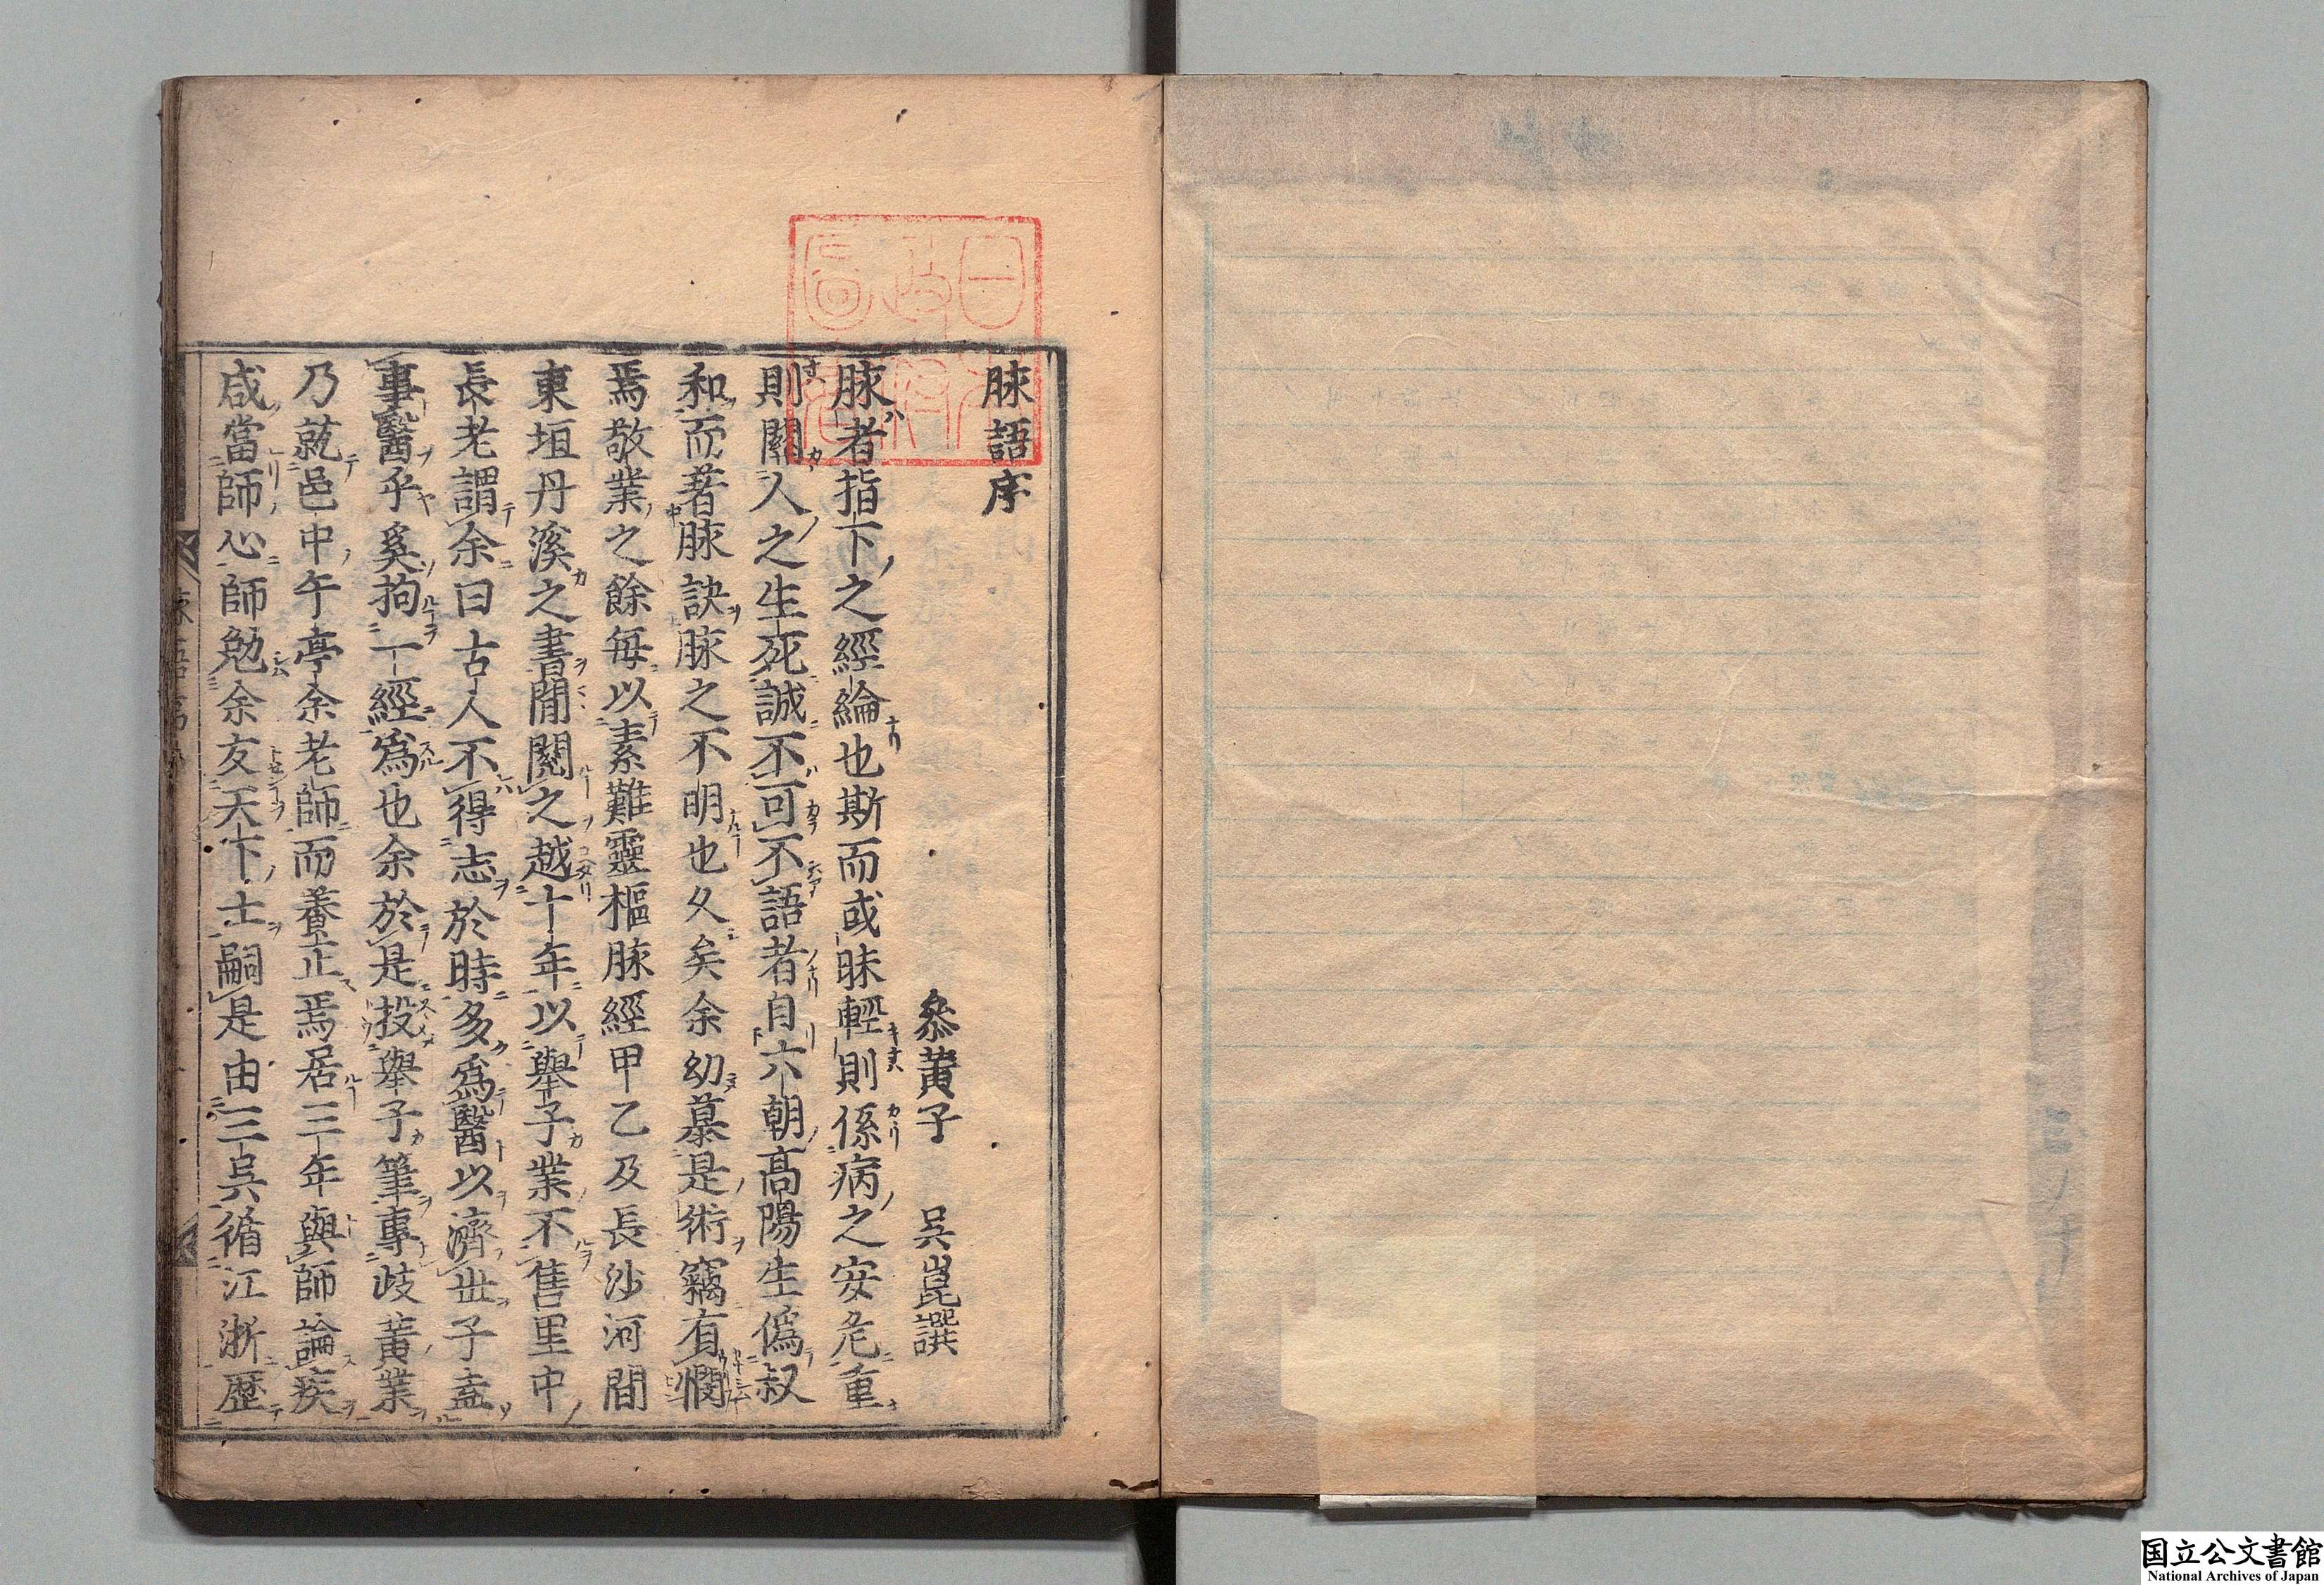 脉語序
參黄子　吳崑譔
脉者指下之經綸也斯而或昧輕則係病之安危重
則關人之生死誠不可不語者自六朝髙陽生僞叔
和而著脉訣脉之不明也久矣余幼慕是術竊有憫
焉敬業之餘毎以素難靈樞脉經甲乙及長沙河間
東垣丹溪之書間閱之越十年以舉子業不售里中
長老謂余曰古人不得志於時多爲醫以濟世子盍
事醫乎奚拘一經爲也余於是投舉子筆專岐黄業
乃就邑中午亭余老師而養正焉居三年與師論疾
咸當師心師勉余友天下士嗣是由三吳循江浙歴
国立公文書館
National Archives of Japan